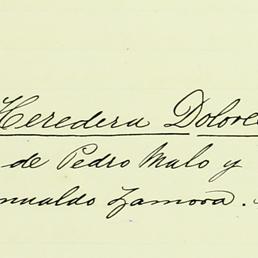 Heredera Dolore
de Pedro Malo y
mualdo Zamora.